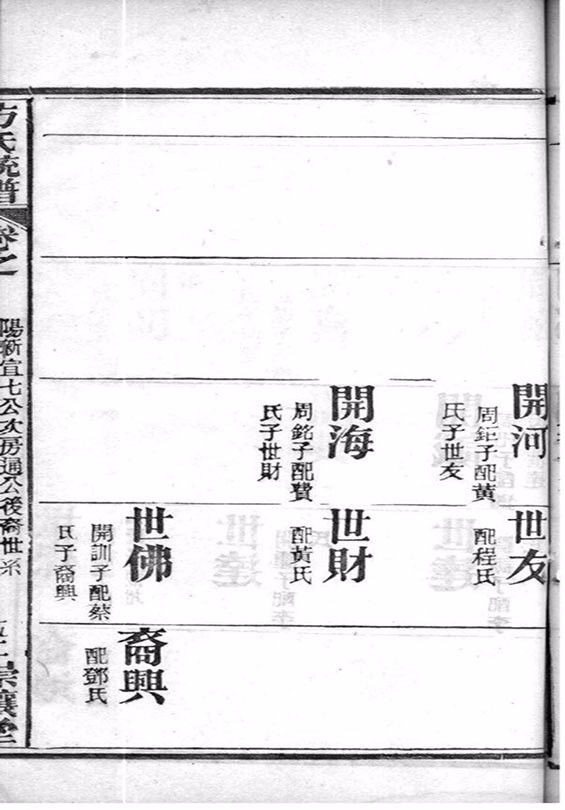 開河
周鉅子配黃
氏子世友
開海
周銘子配費
氏子世財
世友
配程氏
世財
配黃氏
世佛
開訓子配蔡
氏子裔興
裔興
配鄧氏
方氏統譜
卷之
陽新宜七公次房通公後裔世系